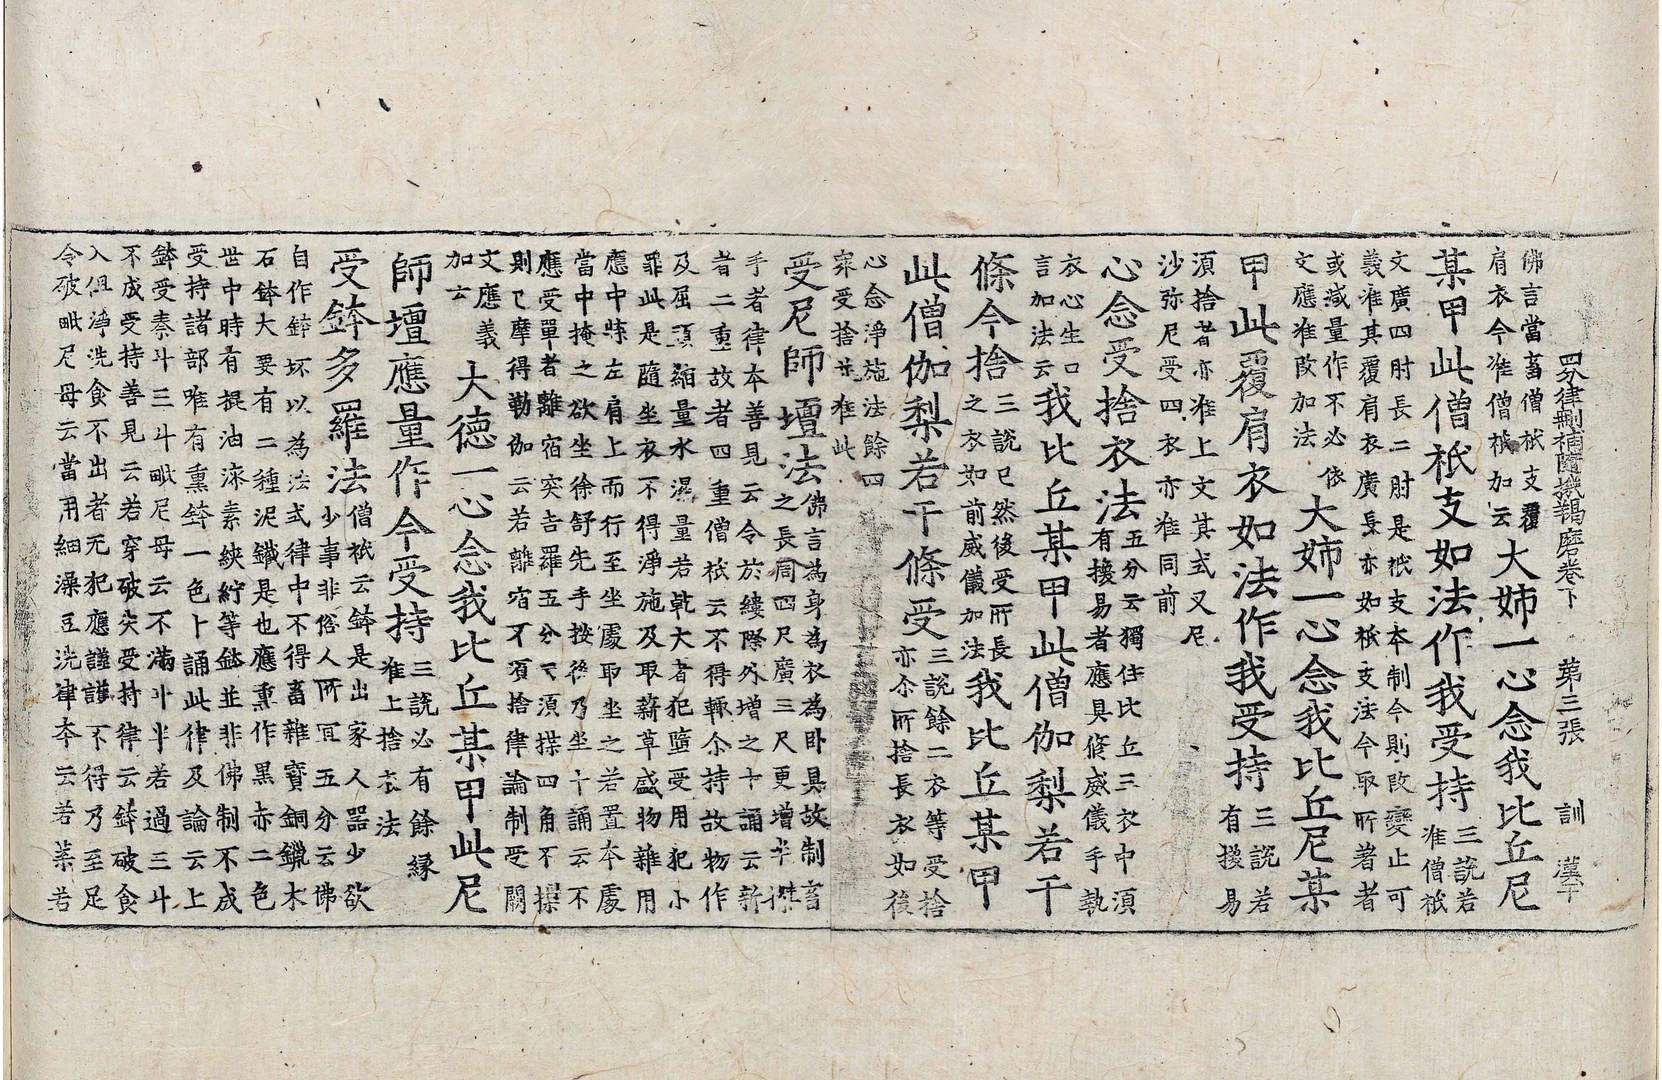 四分律刪補隨機羯磨卷下 第三張 訓 漢干
佛言當畜僧祇支覆
肩衣今准僧祇加云
大姉一心念我比丘尼
某甲此僧祇支如法作我受持
三說若
准僧祇
文廣四肘長二肘是祇支本制今則改變止可
義准其覆肩衣廣長亦如祇支法今取所著者
或減量作不必依
文應准改加法
大姉一心念我比丘尼某
甲此覆肩衣如法作我受持
三說若
有換易
須捨者亦准上文其式叉尼
沙弥尼受四衣亦准同前
心念受捨衣法
五分云獨住比丘三衣中須
有換易者應具修威儀手執
衣心生口
言加法云
我比丘某甲此僧伽梨若干
條今捨
三說已然後受所長
之衣如前威儀加法
我比丘某甲
此僧伽梨若干條受
三說餘二衣等受捨
亦尒所捨長衣如後
心念淨施法餘四
衆受捨並准此
受尼師壇法
佛言為身為衣為卧具故制畜
之長周四尺廣三尺更增半揲
手者律本善見云令於縷際外增之十誦云新
者二重故者四重僧祇云不得輒尒持故物作
及屈頭縮量水濕量若乹大者犯墮受用犯小
罪此是隨坐衣不得淨施及取薪草盛物雜用
應中左肩上而行至坐處取坐之若置本處
當中掩之欲坐徐舒先手按後乃坐十誦云不
應受單者離宿突吉羅五分云須揲四角不揲
則已摩得勒伽云若離宿不須捨律論制受闕
文應義
加云
大德一心念我比丘某甲此尼
師壇應量作今受持
三說必有餘緣
准上捨衣法
受鉢多羅法
僧祇云鉢是出家人器少欲
少事非俗人所冝五分云佛
自作鉢坏以為法式律中不得畜雜寶銅鑞木
石鉢大要有二種泥鐵是也應熏作黑赤二色
世中時有掍油漆素綊紵等鉢並非佛制不成
受持諸部唯有熏鉢一色十誦此律及論云上
鉢受秦斗三斗毗尼母云不滿斗半若過三斗
不成受持善見云若穿破失受持律云鉢破食
入但淨洗食不出者无犯應謹護不得乃至足
令破毗尼母云當用細澡豆洗律本云若葉若